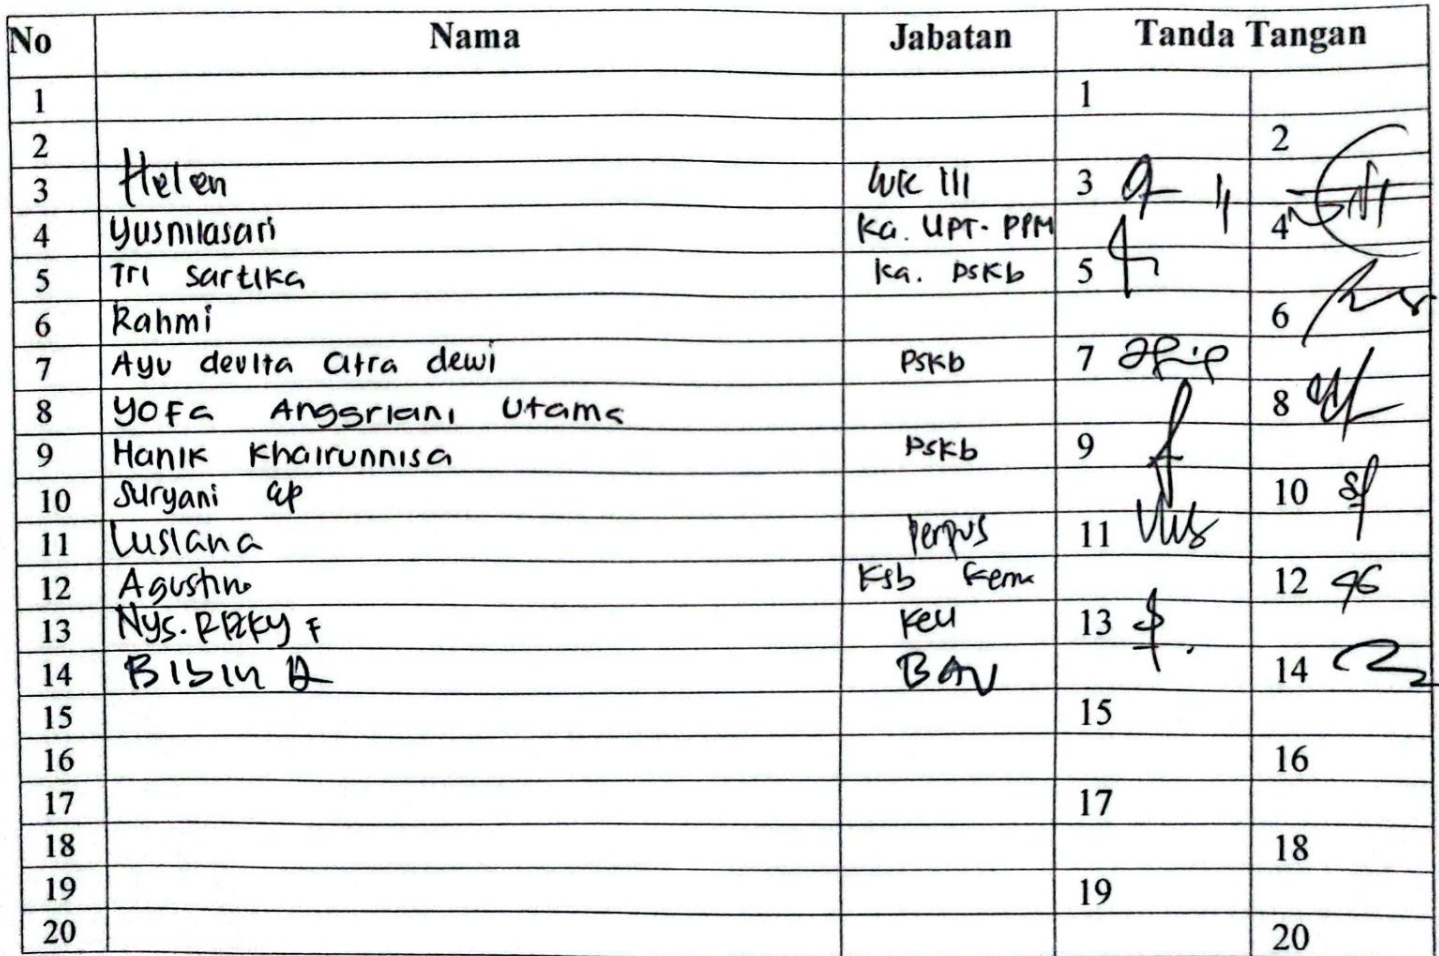 No Nama Jabatan Tanda Tangan
1 1
2 2
3 Helen WK III 3
4 Yusnilasari Ka. UPT. PPM 4
5 Tri Sartika Ka. PSKb 5
6 Rahmi 6
7 Ayu devita Citra dewi PSKb 7
8 Yofa Anggriani Utama 8
9 Hanik Khairunnisa PSKb 9
10 Suryani 10
11 Lusiana Perpus 11
12 Agustin Ksb 12
13 Nys. Rizky F Keu 13
14 Bibin 14
15 15
16 16
17 17
18 18
19 19
20 20